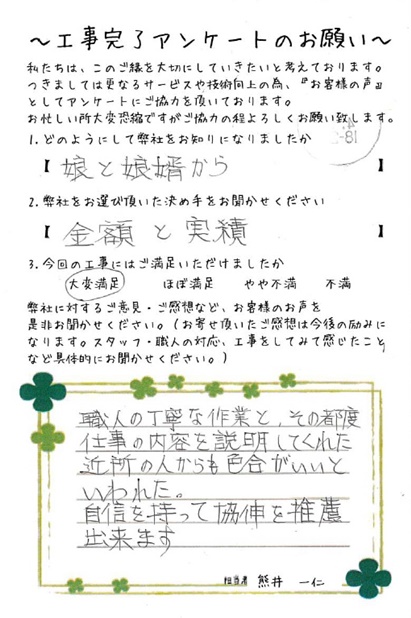 ～工事完了アンケートのお願い～
私たちは、このご縁を大切にしていきたいと考えております。
つきましては更なるサービスや技術向上の為、『お客様の声』
としてアンケートにご協力を頂いております。
お忙しい所大変恐縮ですがご協力の程よろしくお願い致します。
1.どのようにして弊社をお知りになりましたか
【 娘と娘婿から 】
2.弊社をお選び頂いた決め手をお聞かせください
【 金額と実積 】
3.今回の工事にはご満足いただけましたか
大変満足 ほぼ満足 やや不満 不満
弊社に対するご意見・ご感想など、お客様のお声を
是非お聞かせください。(お寄せ頂いたご感想は今後の励みに
なります。スタッフ・職人の対応、工事をしてみて感じたこと
など具体的にお聞かせください。)
職人の丁寧な作業と、その都度
仕事の内容を説明してくれた
近所の人からも色合がいいと
いわれた。
自信を持って協伸を推薦
出来ます
担当者 熊井 一仁